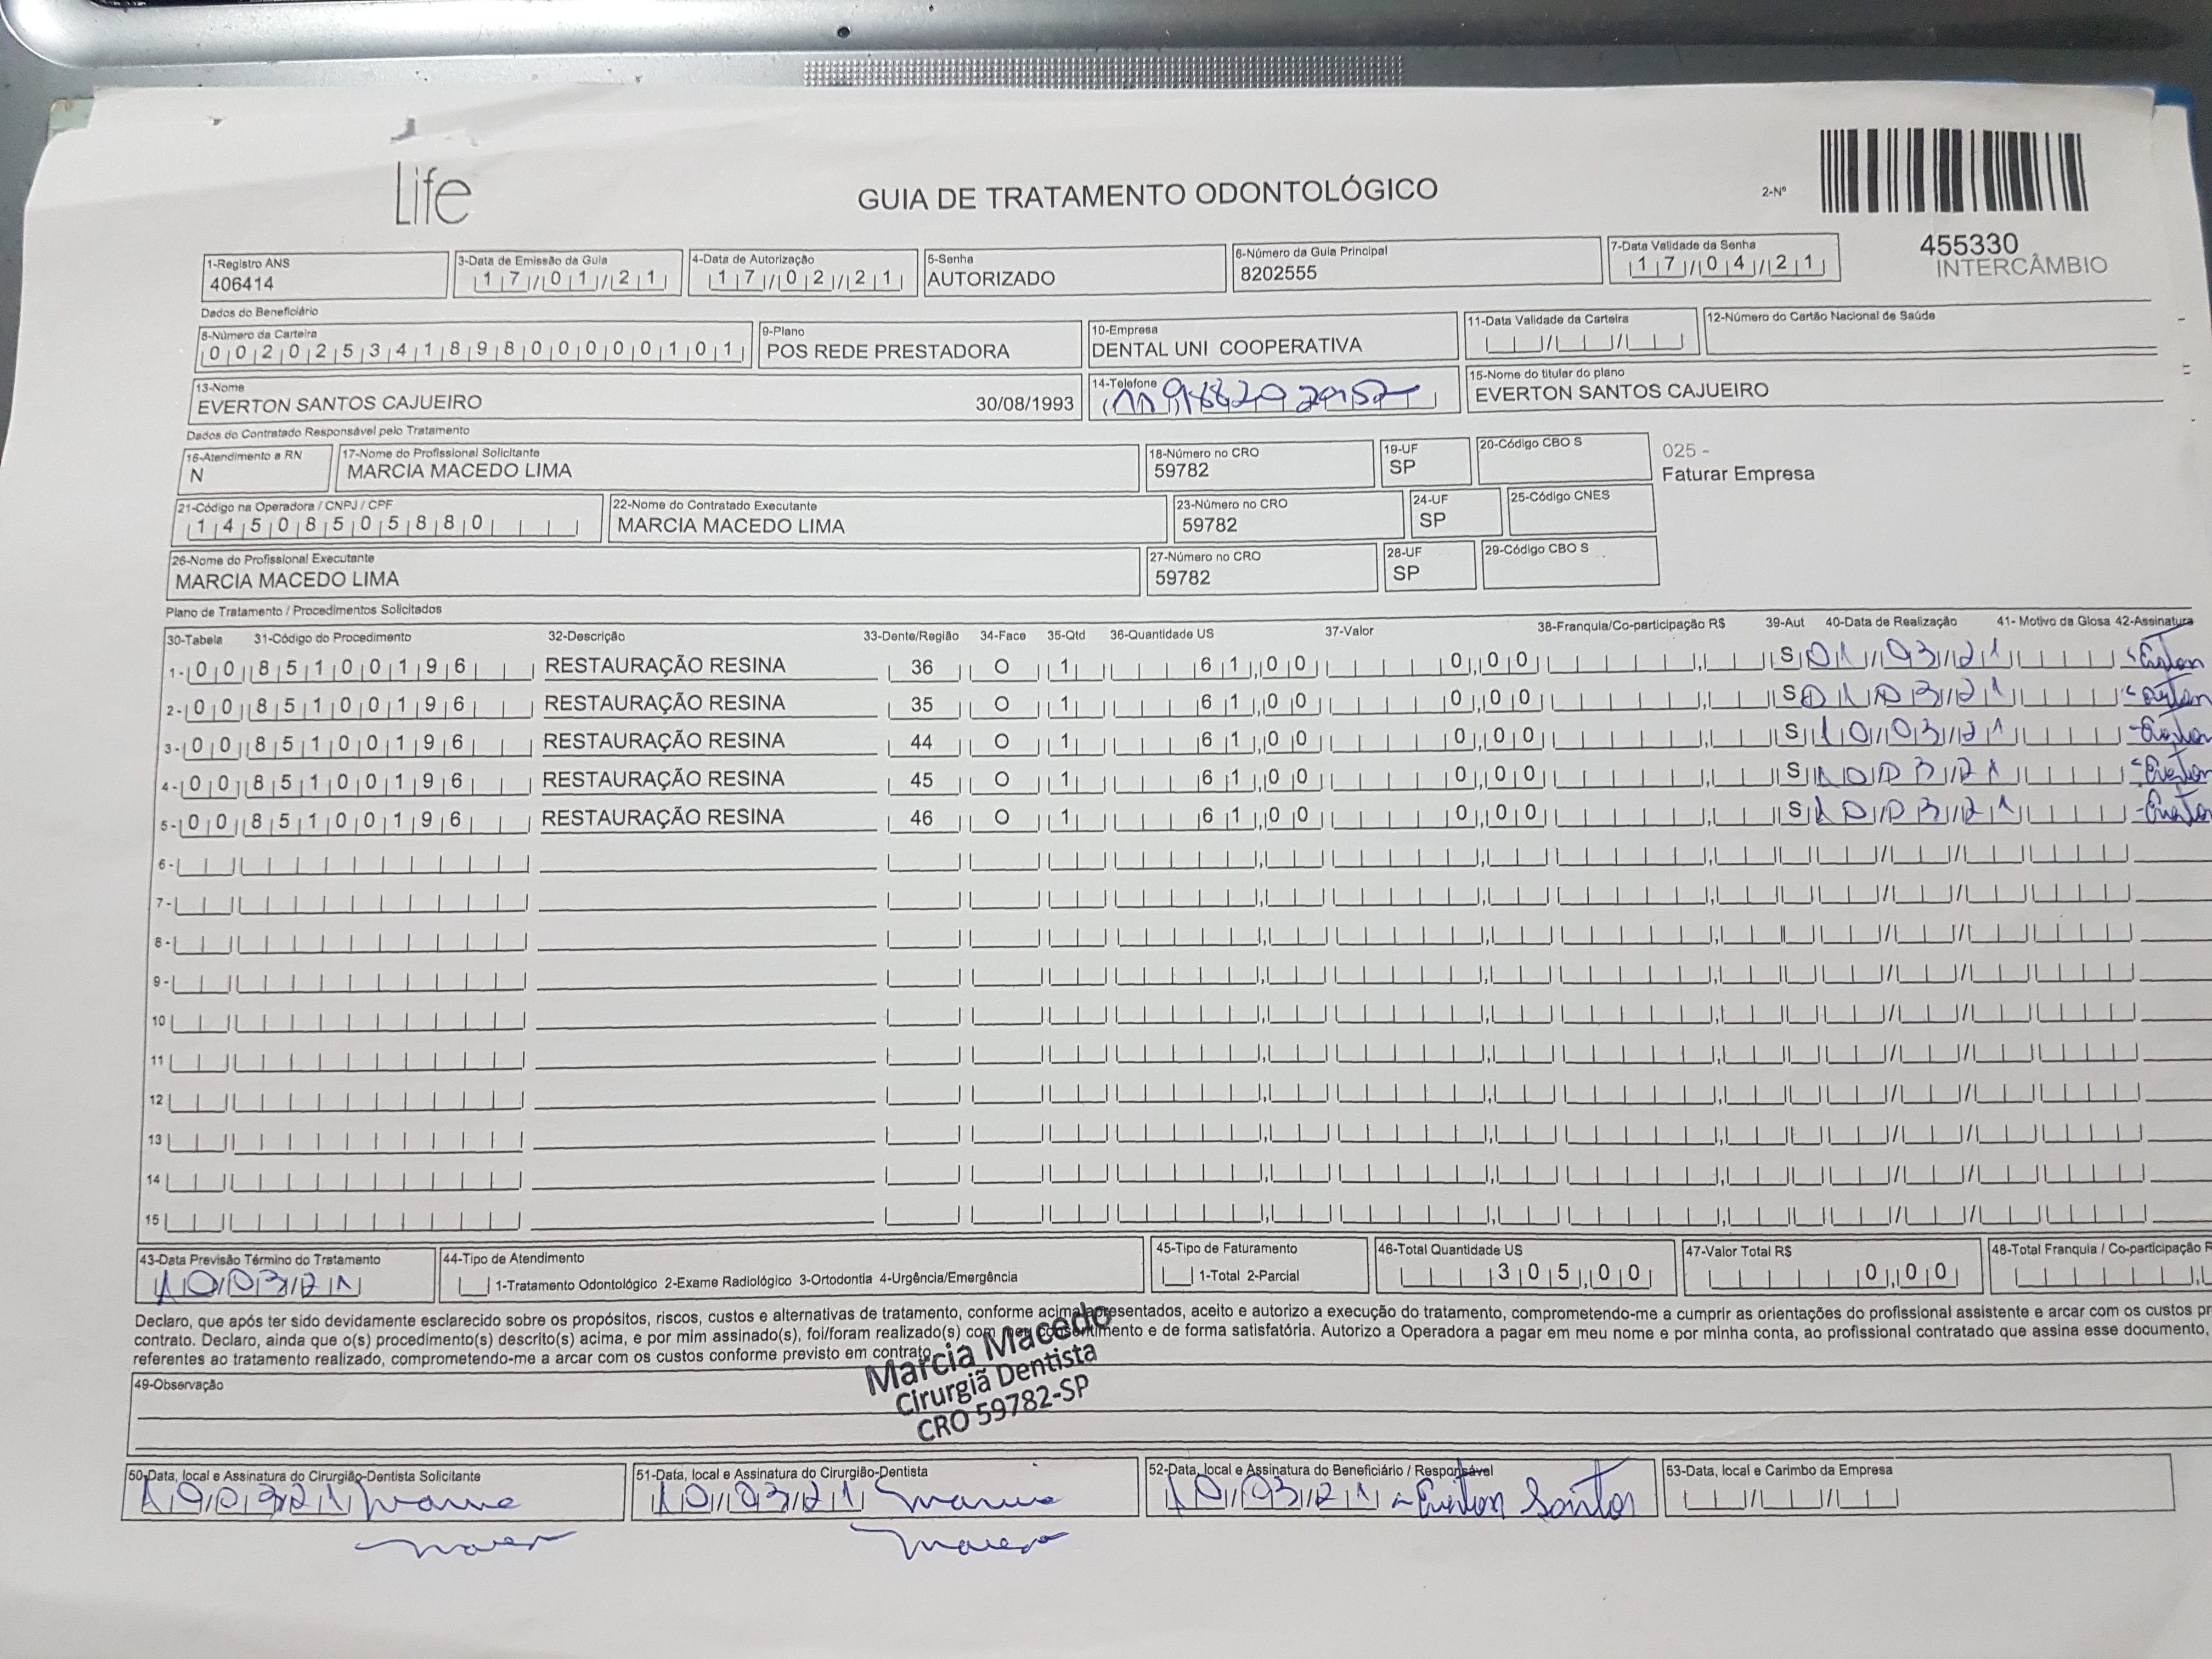 Life
GUIA DE TRATAMENTO ODONTOLÓGICO
2-Nº
455330
INTERCÂMBIO
1-Registro ANS
406414
3-Data de Emissão da Guia
17/01/21
4-Data de Autorização
17/02/21
5-Senha
AUTORIZADO
6-Número da Guia Principal
8202555
7-Data Validade da Senha
17/04/21
Dados do Beneficiário
8-Número da Carteira
00202534189800000101
9-Plano
POS REDE PRESTADORA
10-Empresa
DENTAL UNI COOPERATIVA
11-Data Validade da Carteira
12-Número do Cartão Nacional de Saúde
13-Nome
EVERTON SANTOS CAJUEIRO 30/08/1993
14-Telefone
15-Nome do titular do plano
EVERTON SANTOS CAJUEIRO
Dados do Contratado Responsável pelo Tratamento
16-Atendimento a RN
N
17-Nome do Profissional Solicitante
MARCIA MACEDO LIMA
18-Número no CRO
59782
19-UF
SP
20-Código CBO S
025 -
Faturar Empresa
21-Código na Operadora / CNPJ / CPF
14508505880
22-Nome do Contratado Executante
MARCIA MACEDO LIMA
23-Número no CRO
59782
24-UF
SP
25-Código CNES
26-Nome do Profissional Executante
MARCIA MACEDO LIMA
27-Número no CRO
59782
28-UF
SP
29-Código CBO S
Plano de Tratamento / Procedimentos Solicitados
30-Tabela 31-Código do Procedimento 32-Descrição 33-Dente/Região 34-Face 35-Qtd 36-Quantidade US 37-Valor 38-Franquia/Co-participação R$ 39-Aut 40-Data de Realização 41- Motivo da Glosa 42-Assinatura
1- 00 85100196 RESTAURAÇÃO RESINA 36 O 1 61,00 0,00 S 01/03/21 Everton
2- 00 85100196 RESTAURAÇÃO RESINA 35 O 1 61,00 0,00 S 01/03/21 Everton
3- 00 85100196 RESTAURAÇÃO RESINA 44 O 1 61,00 0,00 S 10/03/21 Everton
4- 00 85100196 RESTAURAÇÃO RESINA 45 O 1 61,00 0,00 S 10/03/21 Everton
5- 00 85100196 RESTAURAÇÃO RESINA 46 O 1 61,00 0,00 S 10/03/21 Everton
6-
7-
8-
9-
10
11
12
13
14
15
43-Data Previsão Término do Tratamento
10/03/21
44-Tipo de Atendimento
1-Tratamento Odontológico 2-Exame Radiológico 3-Ortodontia 4-Urgência/Emergência
45-Tipo de Faturamento
1-Total 2-Parcial
46-Total Quantidade US
305,00
47-Valor Total R$
0,00
48-Total Franquia / Co-participação R
Declaro, que após ter sido devidamente esclarecido sobre os propósitos, riscos, custos e alternativas de tratamento, conforme acima apresentados, aceito e autorizo a execução do tratamento, comprometendo-me a cumprir as orientações do profissional assistente e arcar com os custos pr
contrato. Declaro, ainda que o(s) procedimento(s) descrito(s) acima, e por mim assinado(s), foi/foram realizado(s) com meu consentimento e de forma satisfatória. Autorizo a Operadora a pagar em meu nome e por minha conta, ao profissional contratado que assina esse documento,
referentes ao tratamento realizado, comprometendo-me a arcar com os custos conforme previsto em contrato.
Marcia Macedo
Cirurgiã Dentista
CRO 59782-SP
49-Observação
50-Data, local e Assinatura do Cirurgião-Dentista Solicitante
10/03/21
51-Data, local e Assinatura do Cirurgião-Dentista
10/03/21
52-Data, local e Assinatura do Beneficiário / Responsável
10/03/21 Everton Santos
53-Data, local e Carimbo da Empresa